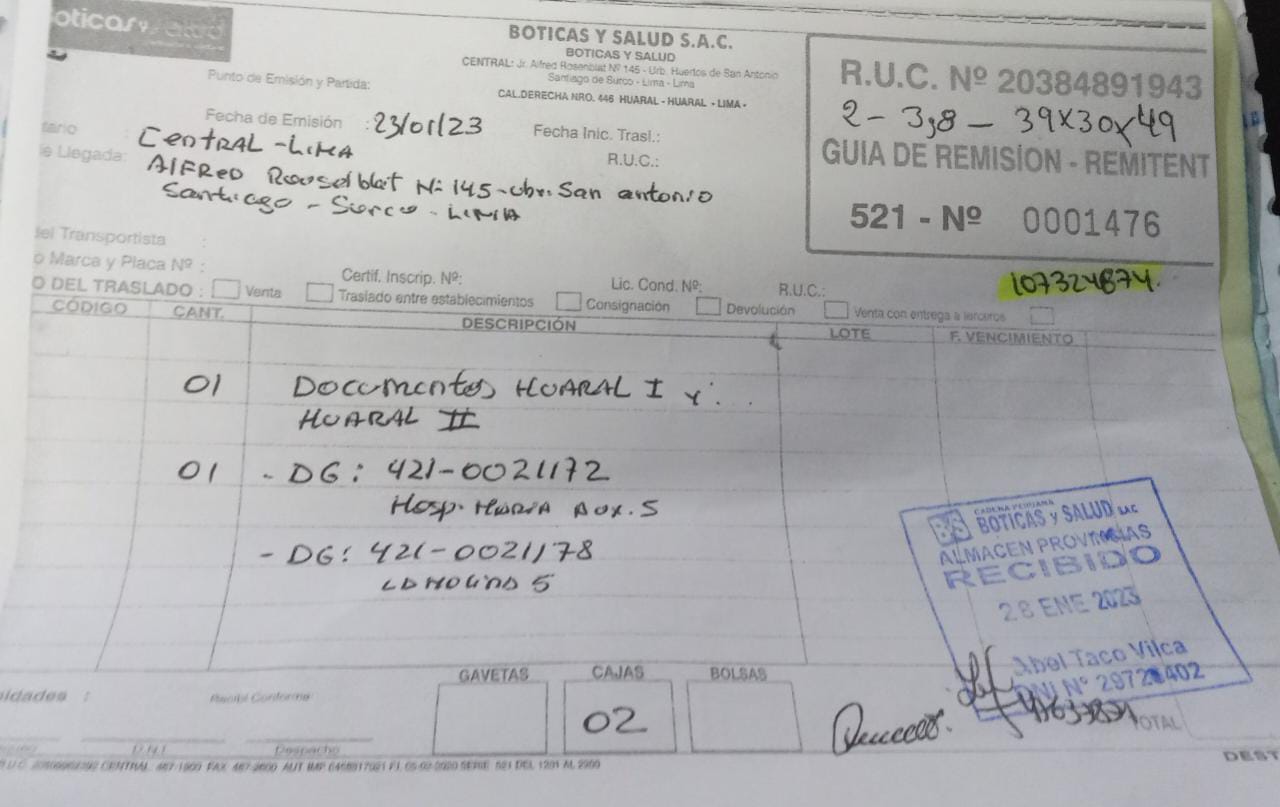 oticas y salud
BOTICAS Y SALUD S.A.C.
BOTICAS Y SALUD
CENTRAL: Jr. Alfred Rosenblat Nº 145 - Urb. Huertos de San Antonio
Santiago de Surco - Lima - Lima
CAL.DERECHA NRO. 446 HUARAL - HUARAL - LIMA -
R.U.C. Nº 20384891943
2 - 3,8 - 39x30x49
GUIA DE REMISION - REMITENT
521 - Nº 0001476
Punto de Emisión y Partida:
Fecha de Emisión : 23/01/23 Fecha Inic. Trasl.:
tario : Central - Lima
R.U.C.:
e Llegada: Alfred Rooselblat N: 145 - Urb. San antonio
Santiago - Surco - Lima
del Transportista :
o Marca y Placa Nº :
Certif. Inscrip. Nº: Lic. Cond. Nº: R.U.C.:
107324874.
O DEL TRASLADO : Venta Traslado entre establecimientos Consignación Devolución Venta con entrega a terceros
CÓDIGO CANT. DESCRIPCIÓN LOTE F. VENCIMIENTO
01 Documentos HUARAL I y
HUARAL II
01 - DG: 421-0021172
Hosp. Maria Aux. 5
- DG: 421-0021178
La Molina 5
CADENA PERUANA
BS BOTICAS y SALUD SAC
ALMACEN PROVINCIAS
RECIBIDO
28 ENE 2023
Abel Taco Vilca
DNI N° 29721402
GAVETAS CAJAS BOLSAS
02
nidades : Recibí Conforme
D.N.I. Despacho
TOTAL
DEST